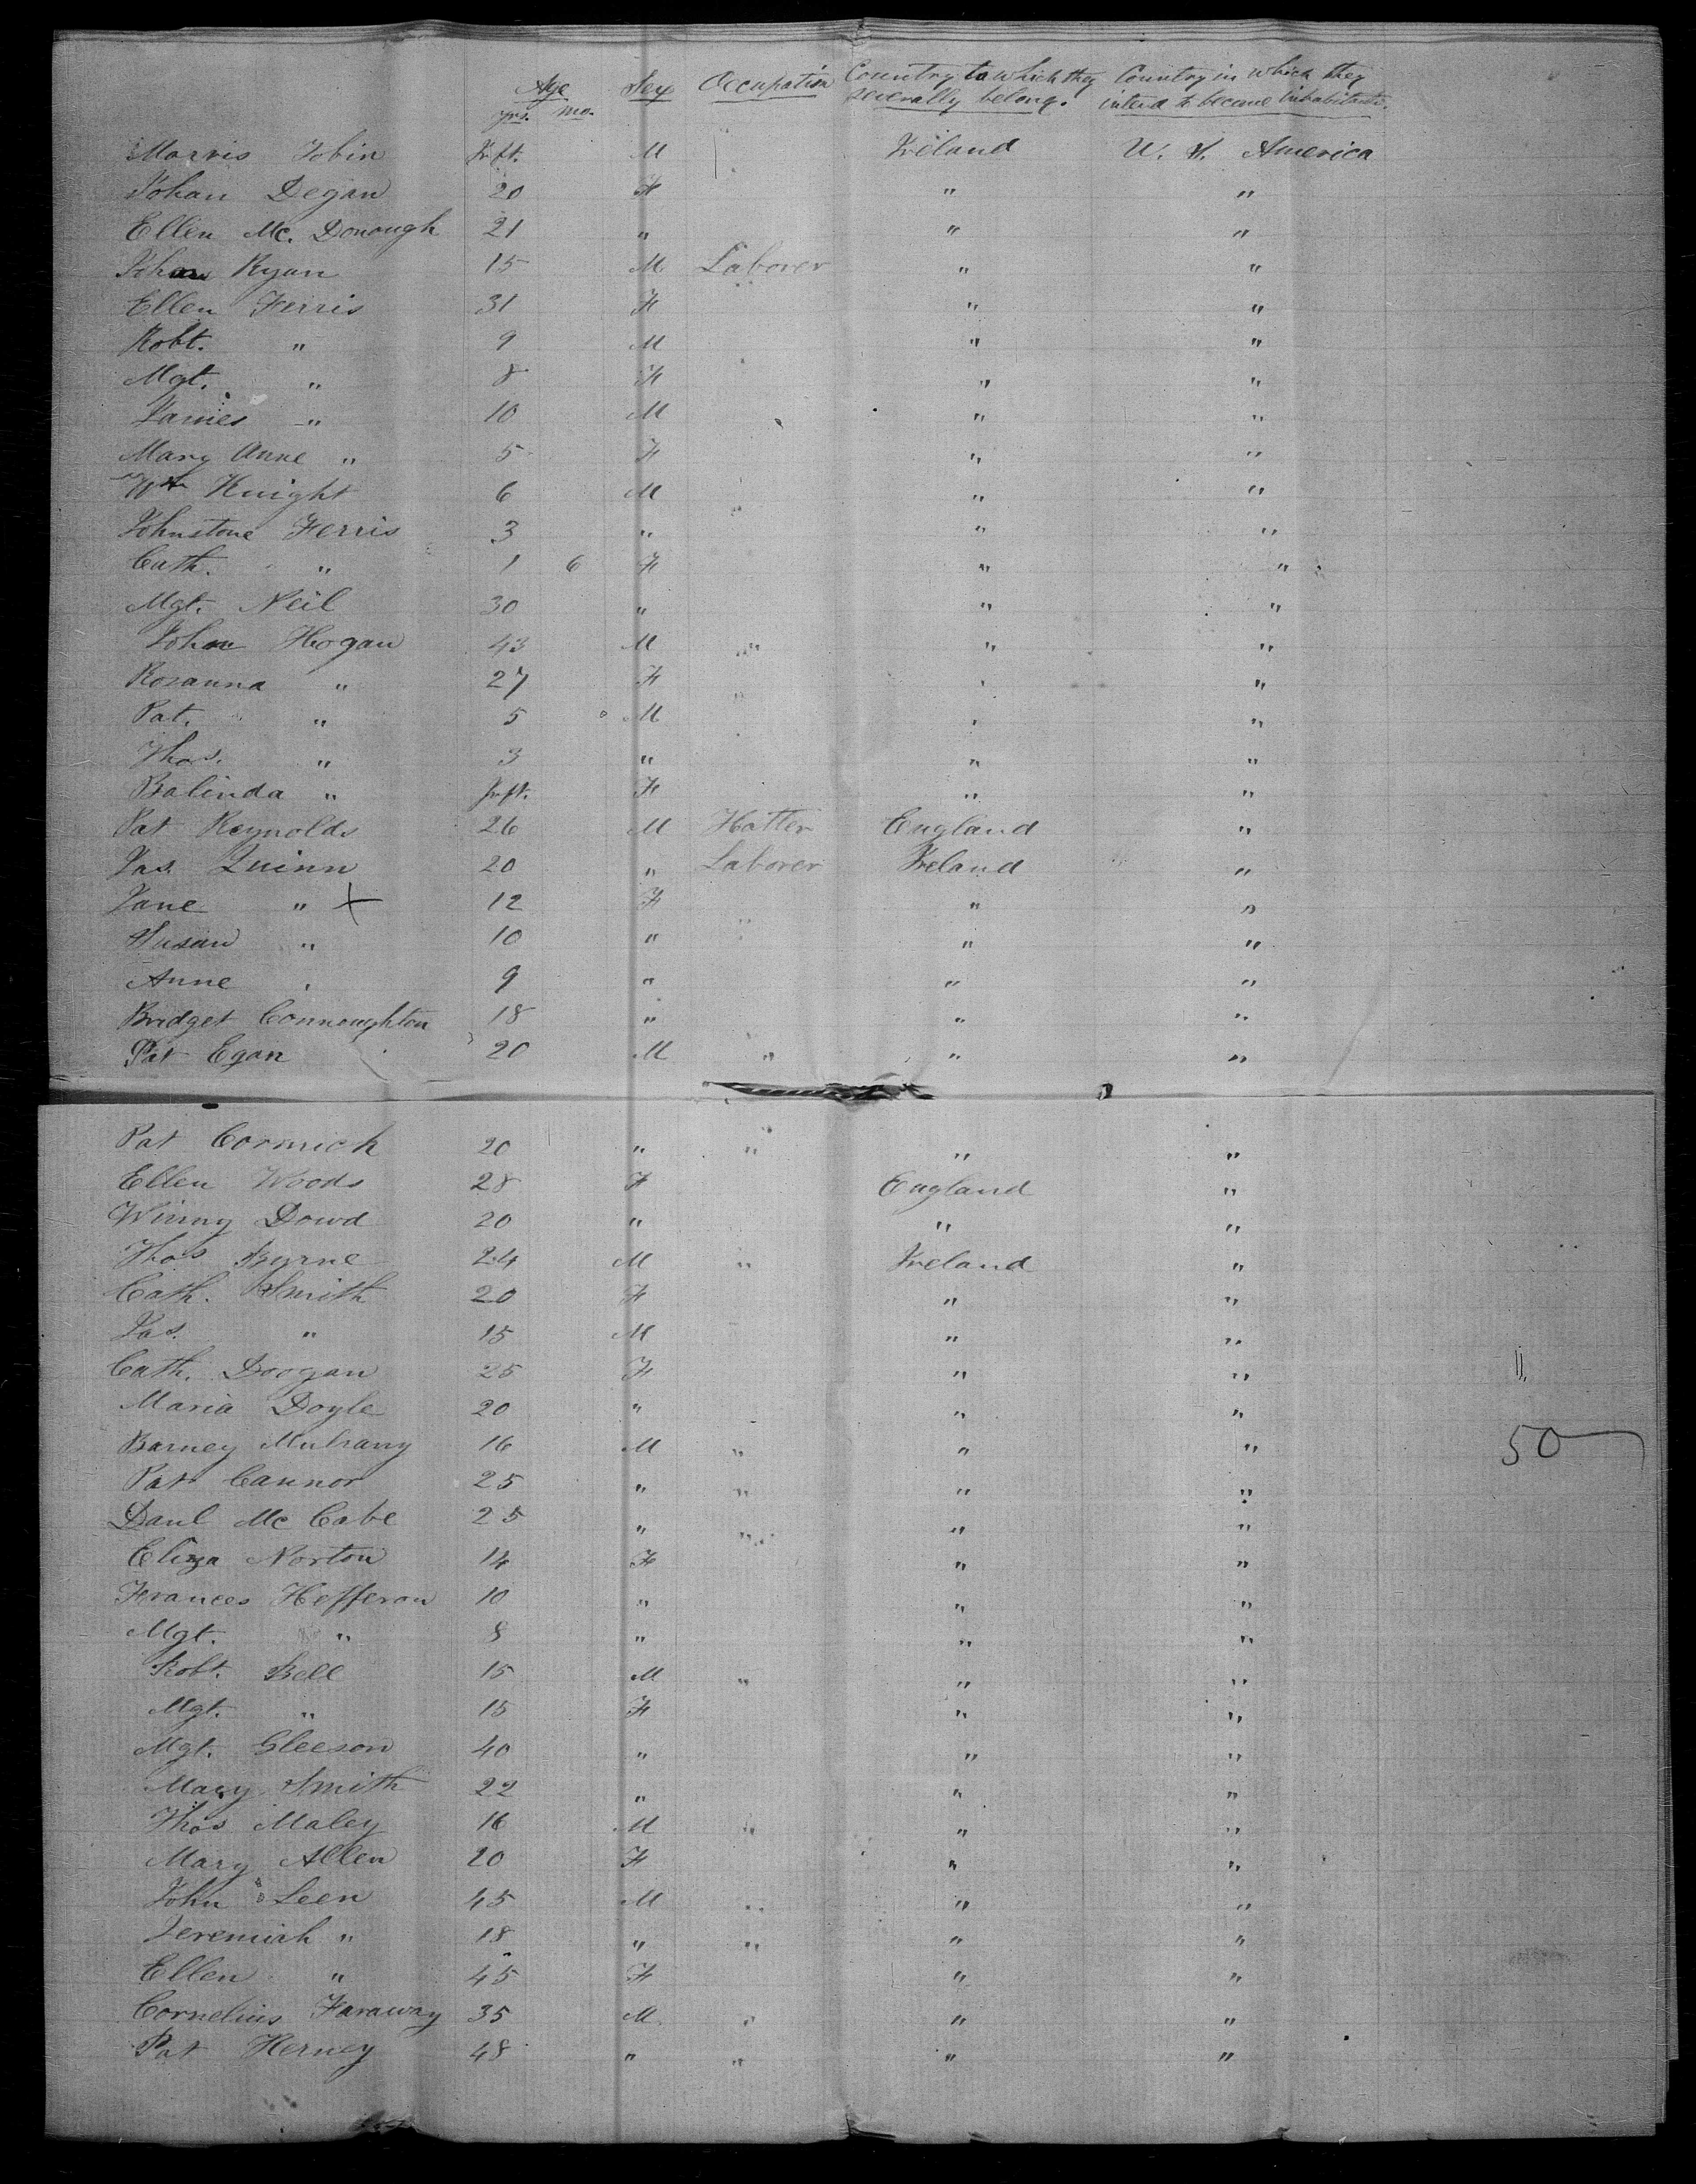 Age Sex Occupation Country to which they Country in which they
yrs. mo. severally belong. intend to become inhabitants.
Morris Tobin Inft. M Ireland U. S. America
Johan Degan 20 F " "
Ellen Mc. Donough 21 " " "
John Ryan 15 M Laborer " "
Ellen Ferris 31 F " "
Robt. " 9 M " "
Mgt. " 8 F " "
James " 10 M " "
Mary Anne " 5 F " "
Wm Knight 6 M " "
Johnstone Ferris 3 " " "
Cath. " 1 6 F " "
Mgt. Neil 30 " " "
John Hogan 43 M " " "
Rosanna " 27 F " "
Pat. " 5 M " "
Thos. " 3 " " "
Balinda " Inft. F " "
Pat Reynolds 26 M Hatter England "
Jas. Quinn 20 " Laborer Ireland "
Jane " X 12 F " "
Susan " 10 " " "
Anne " 9 " " "
Bridget Connoughton 18 " " "
Pat Egan 20 M " " "
Pat Cormick 20 " " " "
Ellen Woods 28 F England "
Winny Dowd 20 " " "
Thos Byrne 24 M " Ireland "
Cath. Smith 20 F " "
Jas. " 15 M " "
Cath. Doogan 25 F " "
Maria Doyle 20 " " "
Barney Mulrany 16 M " " " 50
Pat Cannor 25 " " " "
Danl Mc Cabe 25 " " " "
Eliza Norton 14 F " "
Frances Hefferan 10 " " "
Mgt. " 8 " " "
Robt. Bell 15 M " " "
Mgt. " 15 F " "
Mgt. Gleeson 40 " " "
Mary Smith 22 " " "
Thos Maley 16 M " " "
Mary Allen 20 F " "
John Leen 45 M " " "
Jeremiah " 18 " " " "
Ellen " 45 F " "
Cornelius Faraway 35 M " " "
Pat Herney 48 " " " "